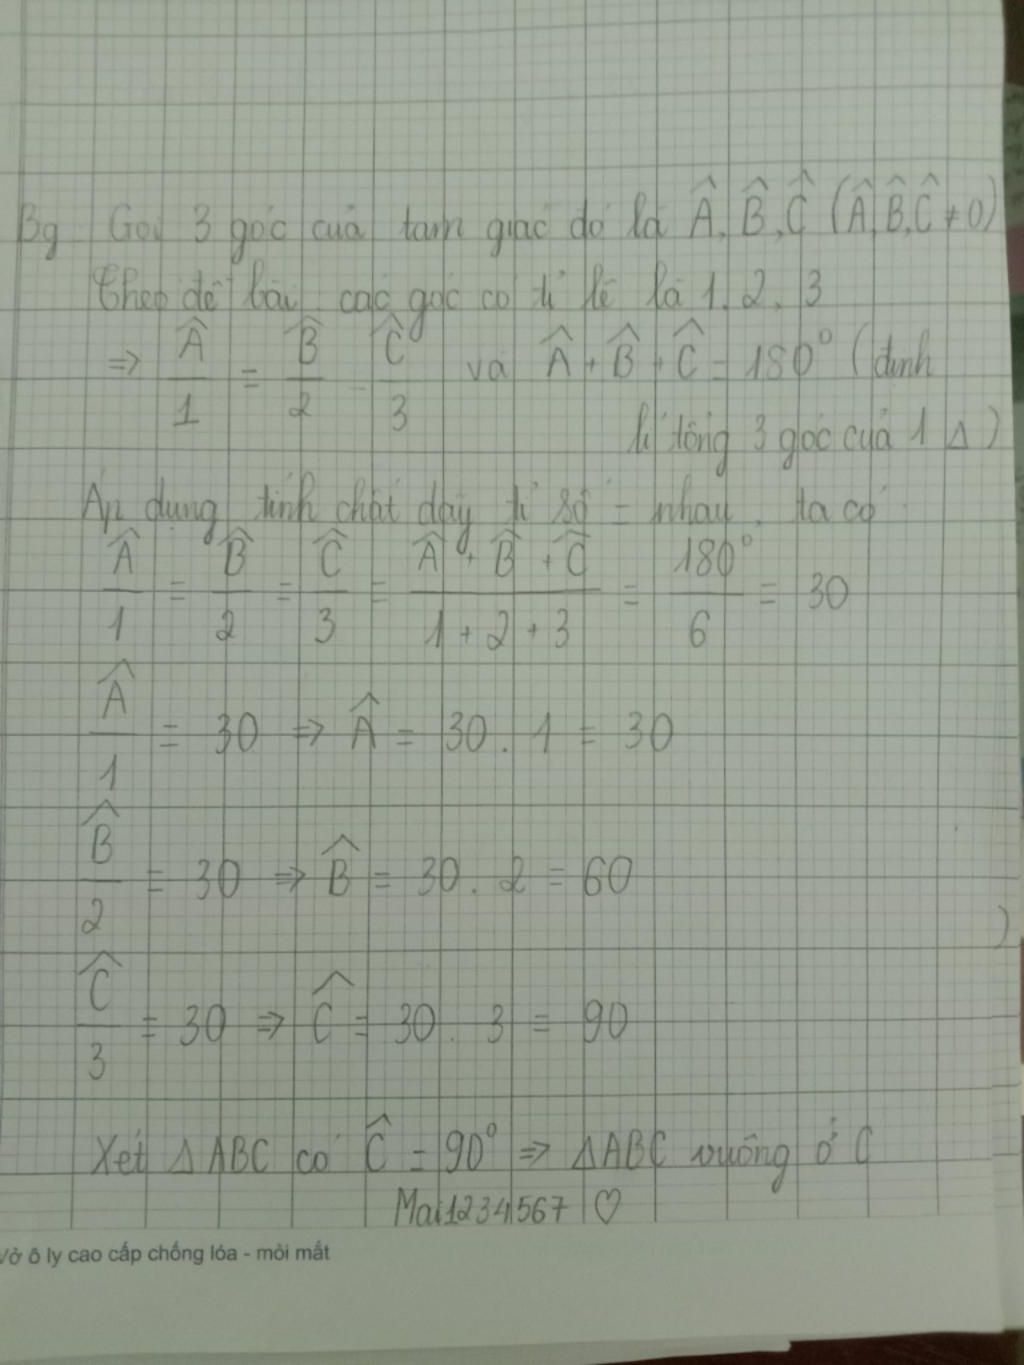 Bg Gọi 3 góc của tam giác đó là Â, B̂, Ĉ (Â, B̂, Ĉ ≠ 0)
Theo đề bài, các góc có tỉ lệ là 1, 2, 3
⇒ Â/1 = B̂/2 = Ĉ/3 và Â + B̂ + Ĉ = 180° (định
lí tổng 3 góc của 1 Δ)
Áp dụng tính chất dãy tỉ số = nhau, ta có
Â/1 = B̂/2 = Ĉ/3 = (Â + B̂ + Ĉ)/(1 + 2 + 3) = 180°/6 = 30
Â/1 = 30 ⇒ Â = 30 . 1 = 30
B̂/2 = 30 ⇒ B̂ = 30 . 2 = 60
Ĉ/3 = 30 ⇒ Ĉ = 30 . 3 = 90
Xét Δ ABC có Ĉ = 90° ⇒ ΔABC vuông ở C
Mai1234567 ♡
Vở ô ly cao cấp chống lóa - mỏi mắt